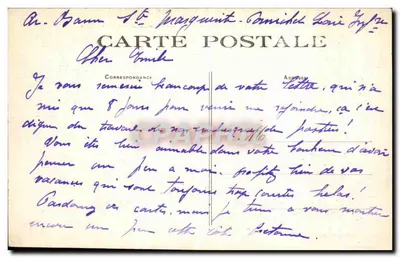 Ar. Baum Ste Marguerite - Pornichet Loire Infre
CARTE POSTALE
Cher Emile
CORRESPONDANCE
Je vous remercie beaucoup de votre lettre, qui n'a
mis que 8 jours pour venir me rejoindre, ça c'est
digne du travail de nos postes!
Vous êtes bien aimable dans votre bonheur d'avoir
penser un peu à moi. profitez bien de vos
vacances qui sont toujours trop courtes helas!
Pardonnez ces cartes, mais je tiens a vous montrer
encore un peu cette côte bretonne.